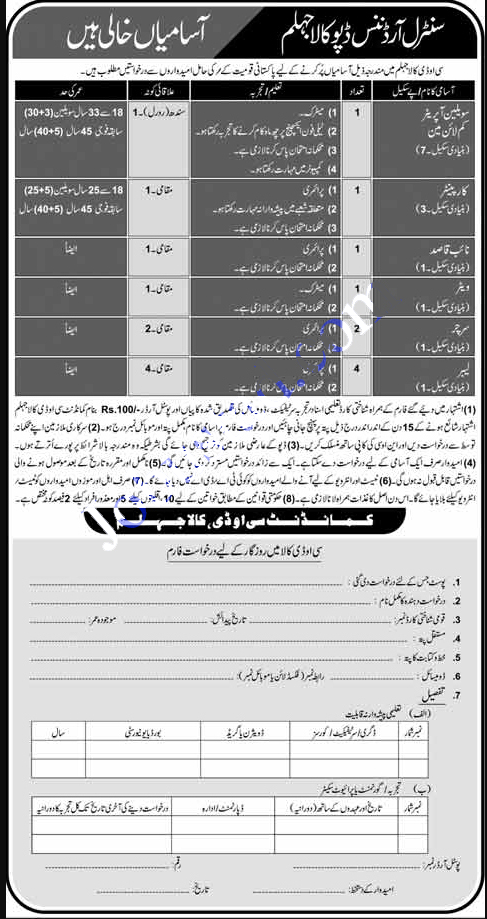 سنٹرل آرڈننس ڈپو کالا جہلم
آسامیاں خالی ہیں
سی او ڈی کالا جہلم میں مندرجہ ذیل آسامیاں پُر کرنے کے لیے پاکستانی قومیت کے مرد کی حامل امیدواروں سے درخواستیں مطلوب ہیں۔
آسامی کا نام / پے سکیل تعداد تعلیم / تجربہ علاقائی کوٹہ عمر کی حد
سویلین آپریٹر کم لائن مین (بنیادی سکیل۔7) 1 سندھ (رورل)۔1
1) میٹرک۔
2) ٹیلی فون ایکسچینج پر چھ ماہ کام کرنے کا تجربہ رکھتا ہو۔
3) محکمانہ امتحان پاس کرنا لازمی ہے۔
4) کمپیوٹر میں مہارت رکھتا ہو۔
18 سے 33 سال سویلین (3+30) سابقہ فوجی 45 سال (5+40) سال
کارپینٹر (بنیادی سکیل۔3) 1 مقامی۔1
1) پرائمری
2) متعلقہ شعبے میں پیشہ ورانہ مہارت رکھتا ہو۔
3) محکمانہ امتحان پاس کرنا لازمی ہے۔
18 سے 25 سال سویلین (5+25) سابقہ فوجی 45 سال (5+40) سال
نائب قاصد (بنیادی سکیل۔1) 1 مقامی۔1 ایضاً
1) پرائمری
2) محکمانہ امتحان پاس کرنا لازمی ہے۔
ویٹر (بنیادی سکیل۔1) 1 مقامی۔1 ایضاً
1) میٹرک۔
2) محکمانہ امتحان پاس کرنا لازمی ہے۔
سرچر (بنیادی سکیل۔1) 2 مقامی۔2 ایضاً
1) پرائمری
2) محکمانہ امتحان پاس کرنا لازمی ہے۔
لیبر (بنیادی سکیل۔1) 4 مقامی۔4 ایضاً
1) پرائمری
2) محکمانہ امتحان پاس کرنا لازمی ہے۔
(1) اشتہار میں دیئے گئے فارم کے ہمراہ شناختی کارڈ، تعلیمی اسناد، تجربہ سرٹیفکیٹ، ڈومیسائل کی تصدیق شدہ کاپیاں اور پوسٹل آرڈر -/Rs.100 بنام کمانڈنٹ سی او ڈی کالا جہلم
اشتہار شائع ہونے کے 15 دن کے اندر اندر درج ذیل پتہ پر پہنچ جانی چاہئیں اور درخواست فارم پر اسامی کا نام مکمل پتہ اور موبائل نمبر درج ہو۔ (2) سرکاری ملازمین اپنے محکمانہ
توسط سے درخواست دیں اور این او سی کی کاپی ساتھ منسلک کریں۔ (3) ڈپو کے عارضی ملازمین کو ترجیح دی جائے گی بشرطیکہ وہ مندرجہ بالا شرائط پر پورے اُترتے ہوں۔
(4) امیدوار صرف ایک آسامی کے لیے درخواست دے سکتا ہے۔ ایک سے زائد درخواستیں مسترد کر دی جائیں گی۔ (5) نامکمل اور مقررہ تاریخ کے بعد موصول ہونے والی
درخواستیں قابل قبول نہ ہوں گی۔ (6) ٹیسٹ اور انٹرویو کے لیے آنے والے امیدواروں کو کوئی ٹی اے ڈی اے نہیں دیا جائے گا۔ (7) صرف اہل اور موزوں امیدواروں کو ٹیسٹ /
انٹرویو کیلئے بلایا جائے گا۔ اس دن اصل کاغذات ہمراہ لانا لازمی ہے۔ (8) حکومتی قوانین کے مطابق خواتین کے لیے 10، اقلیتوں کیلئے 5 اور معذور افراد کیلئے 2 فیصد کوٹہ مختص ہے۔
کمانڈنٹ سی او ڈی، کالا جہلم
سی او ڈی کالا میں روزگار کے لیے درخواست فارم
1. پوسٹ جس کے لئے درخواست دی گئی:
2. درخواست دہندہ کا مکمل نام:
3. قومی شناختی کارڈ نمبر: تاریخ پیدائش: موجودہ عمر:
4. مستقل پتہ:
5. خط و کتابت کا پتہ:
6. ڈومیسائل: رابطہ نمبر (فکسڈ لائن یا موبائل نمبر):
7. تفصیل
(الف) تعلیمی / پیشہ ورانہ قابلیت
نمبر شمار ڈگری / سرٹیفکیٹ / کورسز ڈویژن یا گریڈ بورڈ یا یونیورسٹی سال
(ب) تجربہ / گورنمنٹ یا پرائیویٹ سیکٹر
نمبر شمار تاریخ اور عہدوں کے ساتھ (دورانیہ) ڈیپارٹمنٹ / ادارہ درخواست دینے کی آخری تاریخ تک کل تجربہ کا دورانیہ
پوسٹل آرڈر نمبر: رقم:
امیدوار کے دستخط: تاریخ: